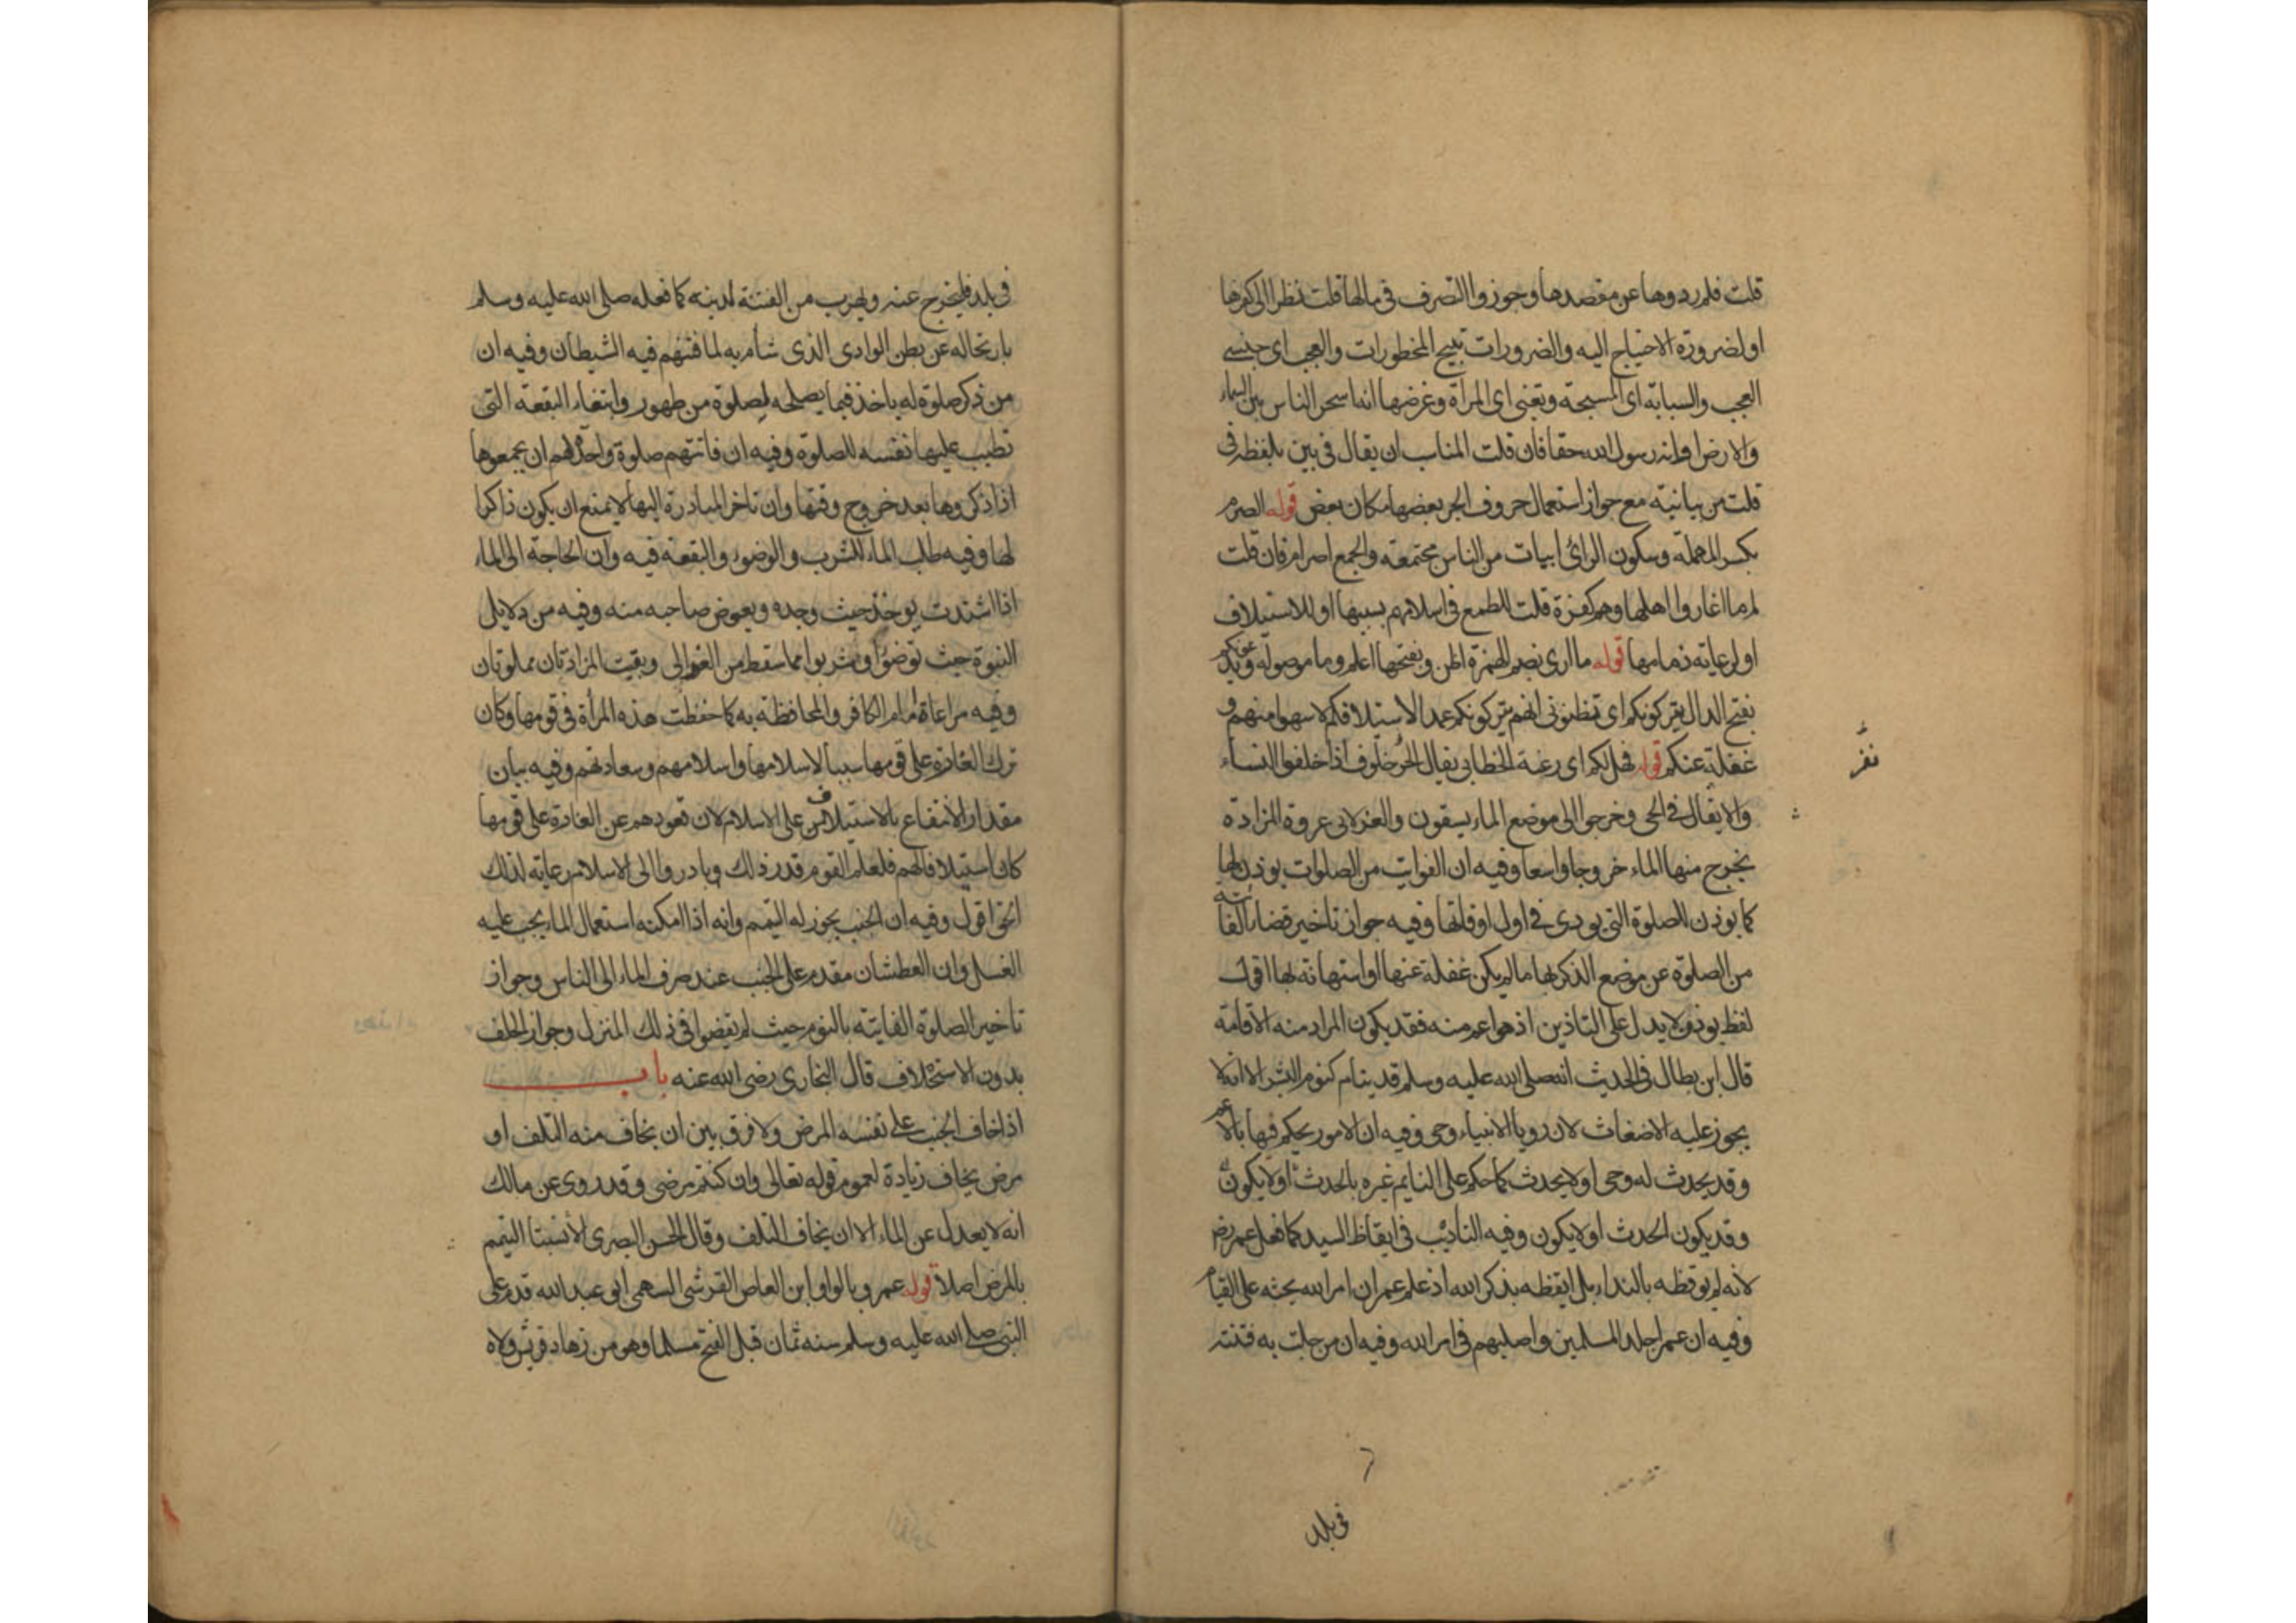 قلت فلم ردوها عن مقصدها وجوزوا التصرف في مالها قلت نظرا الى كفرها
او لضرورة الاحتياج اليه والضرورات تبيح المحظورات والعجب اى جنسى
العجب والسبابة اى المسبحة وتعنى اى المراة وغرضها انه اسحر الناس بين السماء
والارض او انه رسول الله حقا فان قلت المناسب ان يقال في بين بلفظ في
قلت من بيانية مع جواز استعمال حروف الجر بعضها مكان بعض قوله الصرم
بكسر المهملة وسكون الرائ ابيات من الناس مجتمعة والجمع اصرام فان قلت
لم ما اغاروا اهلها وهم كفرة قلت للطمع في اسلامهم بسببها او للاستيلاف
او لرعاية ذمامها قوله ما ارى بضم الهمزة اظن وبفتحها اعلم وما موصوله ويدعونكم
بفتح الدال يتركونكم اى تظنونى انهم يتركونكم عمدا لاستيلافكم لا سهوا منهم و
غفلة عنكم قوله فهل لكم اى رغبة الخطابى يقال الحى خلوف اذا خلفوا النساء
نفر
والاثقال في الحى وخرجوا الى موضع الماء يسقون والعزلاء عروة المزادة
يخرج منها الماء خروجا واسعا وفيه ان الفوايت من الصلوات يوذن لها
كما يوذن للصلوة التى يودى في اول اوقاتها وفيه جواز تاخير قضاء الفائتة
من الصلوة عن موضع الذكر لها ما لم يكن غفلة عنها او استهانة لها اقول
لفظ يوذن ولا يدل على التاذين اذ هو اعم منه فقد يكون المراد منه الاقامة
قال ابن بطال في الحديث انه صلى الله عليه وسلم قد ينام كنوم البشر الا انه لا
يجوز عليه الاضغاث لان رويا الانبياء وحى وفيه ان الامور يحكم فيها بالاعم
وقد يحدث له وحى او لا يحدث كما حكم على النايم غيره بالحدث او لا يكون
وقد يكون الحدث او لا يكون وفيه التاديب في ايقاظ السيد كما فعل عمر رض
لانه لم يوقظه بالنداء بل ايقظه بذكر الله اذ علم عمر ان امر الله يحثه على القيام
وفيه ان عمر اجلد المسلمين واصلبهم في امر الله وفيه ان من حلت به فتنة
في بلد
في بلد فليخرج عنه ويهرب من الفتنة لدينه كما فعله صلى الله عليه وسلم
بارتحاله عن بطن الوادى الذى تشأم به لما فتنهم فيه الشيطان وفيه ان
من ذكر صلوة له ياخذ فيما يصلحه لصلوة من طهور وابتغاء البقعة التى
تطيب عليها نفسه للصلوة وفيه ان فاتتهم صلوة واحدة لهم ان يجمعوها
اذا ذكروها بعد خروج وقتها وان تاخر المبادرة اليها لا يمنع ان يكون ذاكرا
لها وفيه طلب الماء للشرب والوضوء والبقعة فيه وان الحاجة الى الماء
اذا اشتدت يوخذ حيث وجده ويعوض صاحبه منه وفيه من دلايل
النبوة حيث توضؤا وشربوا مما سقط من العزالى وبقيت المزادتان مملوتان
وفيه مراعاة ذمام الكافر والمحافظة به كما حفظت هذه المرأة في قومها وكان
ترك الغارة على قومها سببا لاسلامها واسلامهم وسعادتهم وفيه بيان
مقدار الانتفاع بالاستيلاف على الاسلام لان قعودهم عن الغارة على قومها
كان استيلافا لهم فلعلم القوم قدر ذلك وبادروا الى الاسلام رعاية لذلك
الحق اقول وفيه ان الجنب يجوز له التيمم وانه اذا امكنه استعمال الماء يجب عليه
الغسل وان العطشان مقدم على الجنب عند صرف الماء الى الناس وجواز
تاخير الصلوة الفايتة بالنوم حيث لم يقضوا في ذلك المنزل وجواز الحلف
بدون الاستحلاف قال البخارى رضى الله عنه باب
اذا خاف الجنب على نفسه المرض ولا فرق بين ان يخاف منه التلف او
مرض يخاف زيادة لعموم قوله تعالى وان كنتم مرضى وقد روى عن مالك
انه لا يعدل عن الماء الا ان يخاف التلف وقال الحسن البصرى لا يستباح التيمم
بالمرض اصلا قوله عمرو بالواو ابن العاص القرشى السهمى ابو عبد الله قدم على
النبى صلى الله عليه وسلم سنه ثمان قبل الفتح مسلما وهو من زهاد قريش ولاه